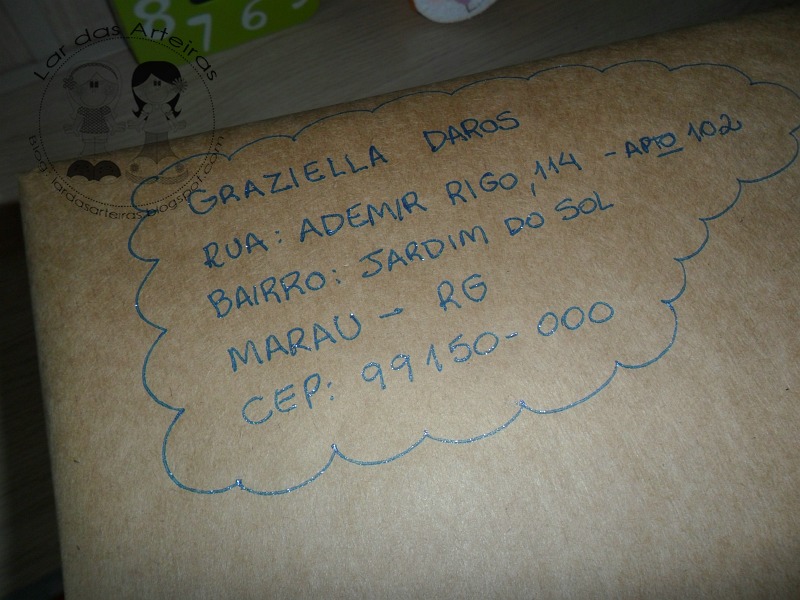 8 7 6 5
Lar das Arteiras
Blog: lardasarteiras.blogspot.com
GRAZIELLA DAROS
RUA: ADEMIR RIGO, 114 - APTO 102
BAIRRO: JARDIM DO SOL
MARAU - RG
CEP: 99150-000